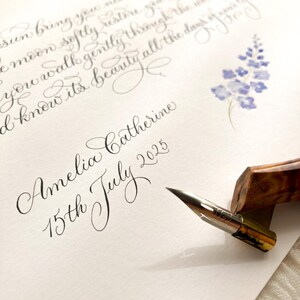 sun bring you
the moon softly restore
you walk gently through the
d know its beauty all the days of your
Amelia Catherine
15th July 2025